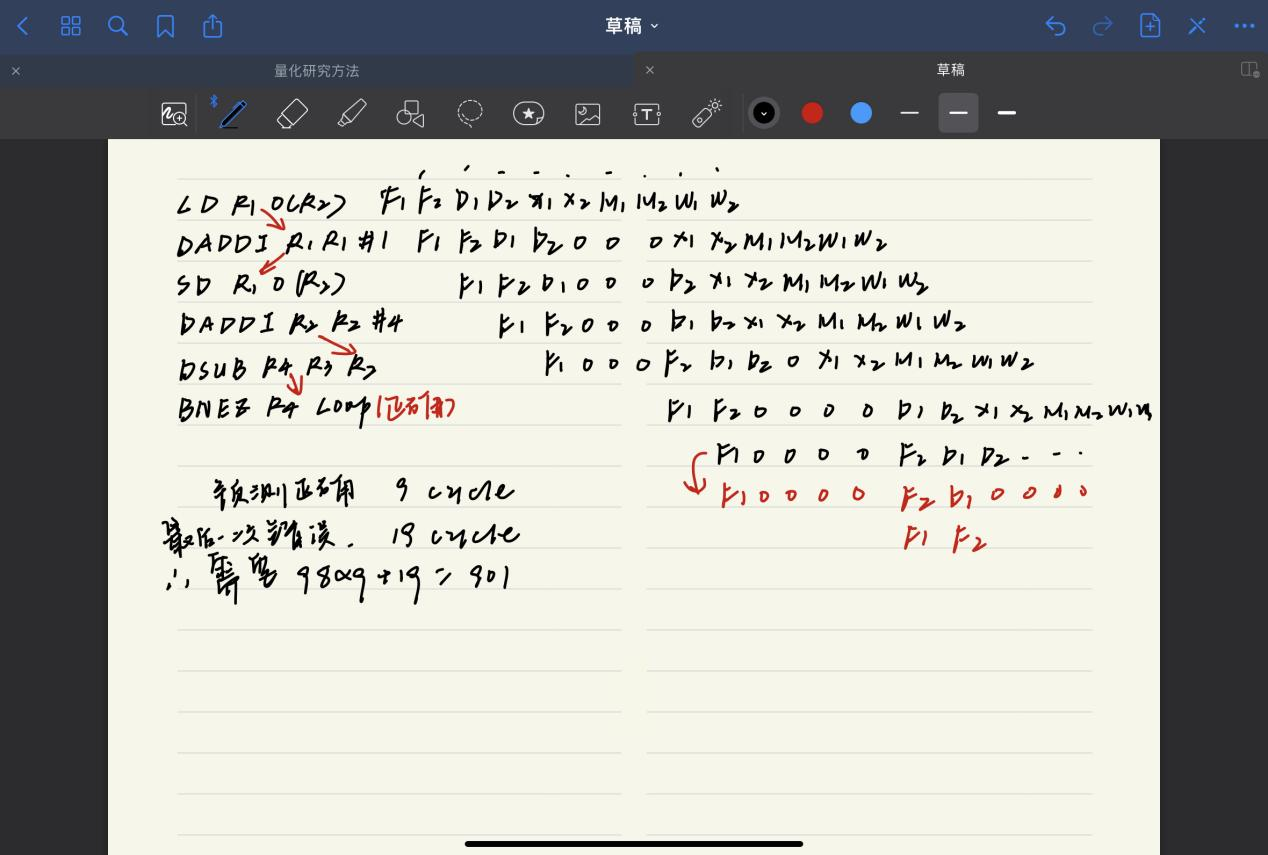 草稿
量化研究方法
草稿
LD R1 0(R2) F1 F2 D1 D2 X1 X2 M1 M2 W1 W2
DADDI R1 R1 #1 F1 F2 D1 D2 0 0 0 X1 X2 M1 M2 W1 W2
SD R1 0(R2) F1 F2 D1 0 0 0 D2 X1 X2 M1 M2 W1 W2
DADDI R2 R2 #4 F1 F2 0 0 0 D1 D2 X1 X2 M1 M2 W1 W2
DSUB R4 R3 R2 F1 0 0 0 F2 D1 D2 0 X1 X2 M1 M2 W1 W2
BNEZ R4 Loop(正确) F1 F2 0 0 0 0 D1 D2 X1 X2 M1 M2 W1 W2
F1 0 0 0 0 F2 D1 D2 - - -
预测正确 9 cycle F1 0 0 0 0 F2 D1 0 0 0 0
最后一次错误. 19 cycle F1 F2
∴ 需要 98×9+19=901